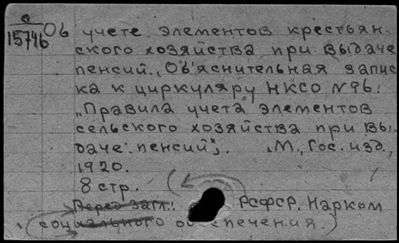 е
15746
Об учете элементов крестьян-
ского хозяйства при выдаче
пенсий. Об'яснительная запис
ка к циркуляру НКСО №96:
"Правила учета элементов
сельского хозяйства при вы-
даче пенсий". М., Гос. изд.,
1920.
8 стр.
Перед загл.: РСФСР. Нарком
(социального обеспечения.)